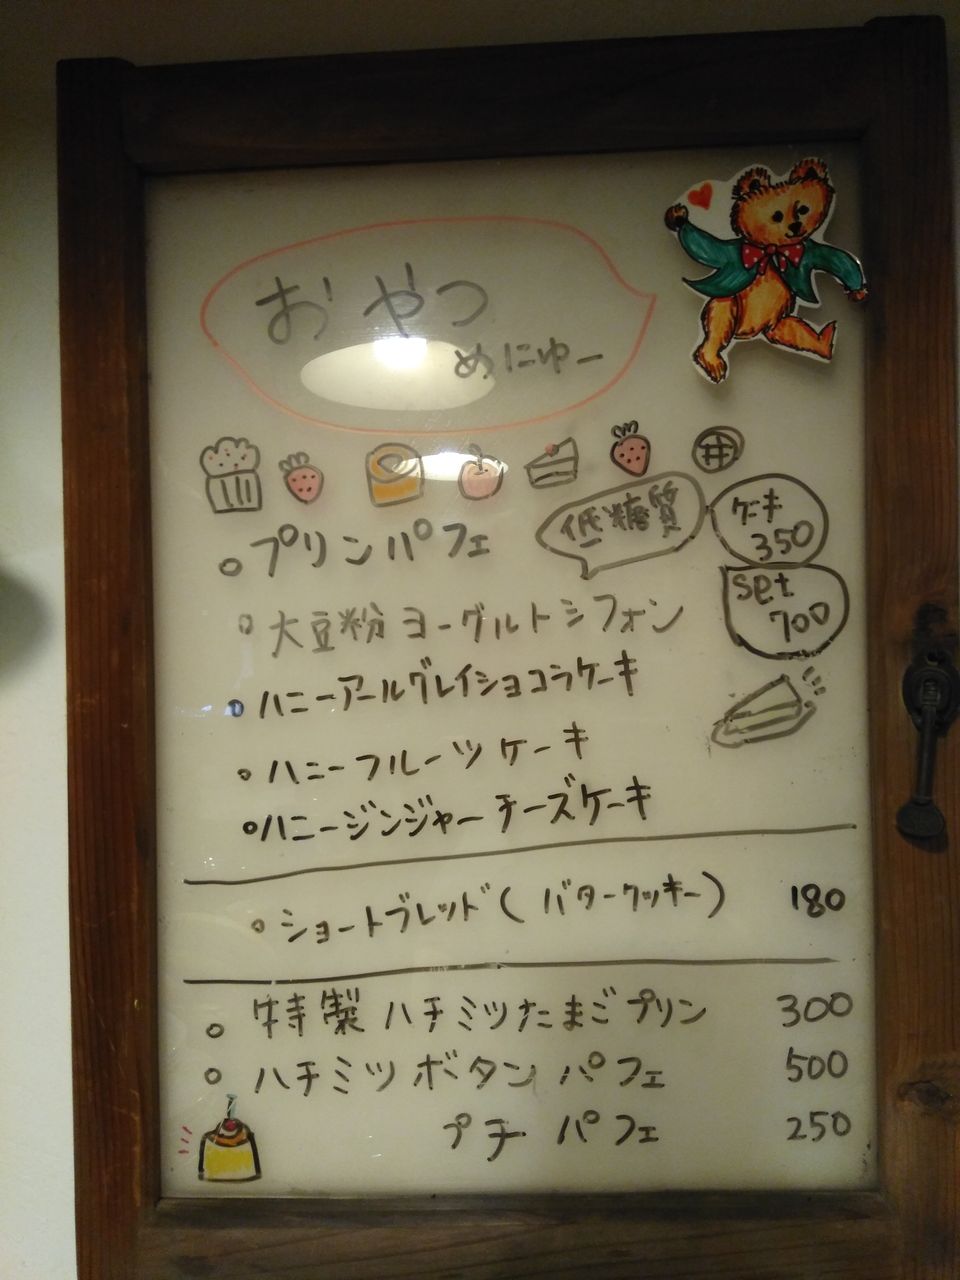 おやつ
めにゅー
プリンパフェ
低糖質
ケーキ
350
set
700
大豆粉ヨーグルトシフォン
ハニーアールグレイショコラケーキ
ハニーフルーツケーキ
ハニージンジャーチーズケーキ
ショートブレッド(バタークッキー) 180
特製ハチミツたまごプリン 300
ハチミツボタンパフェ 500
プチパフェ 250